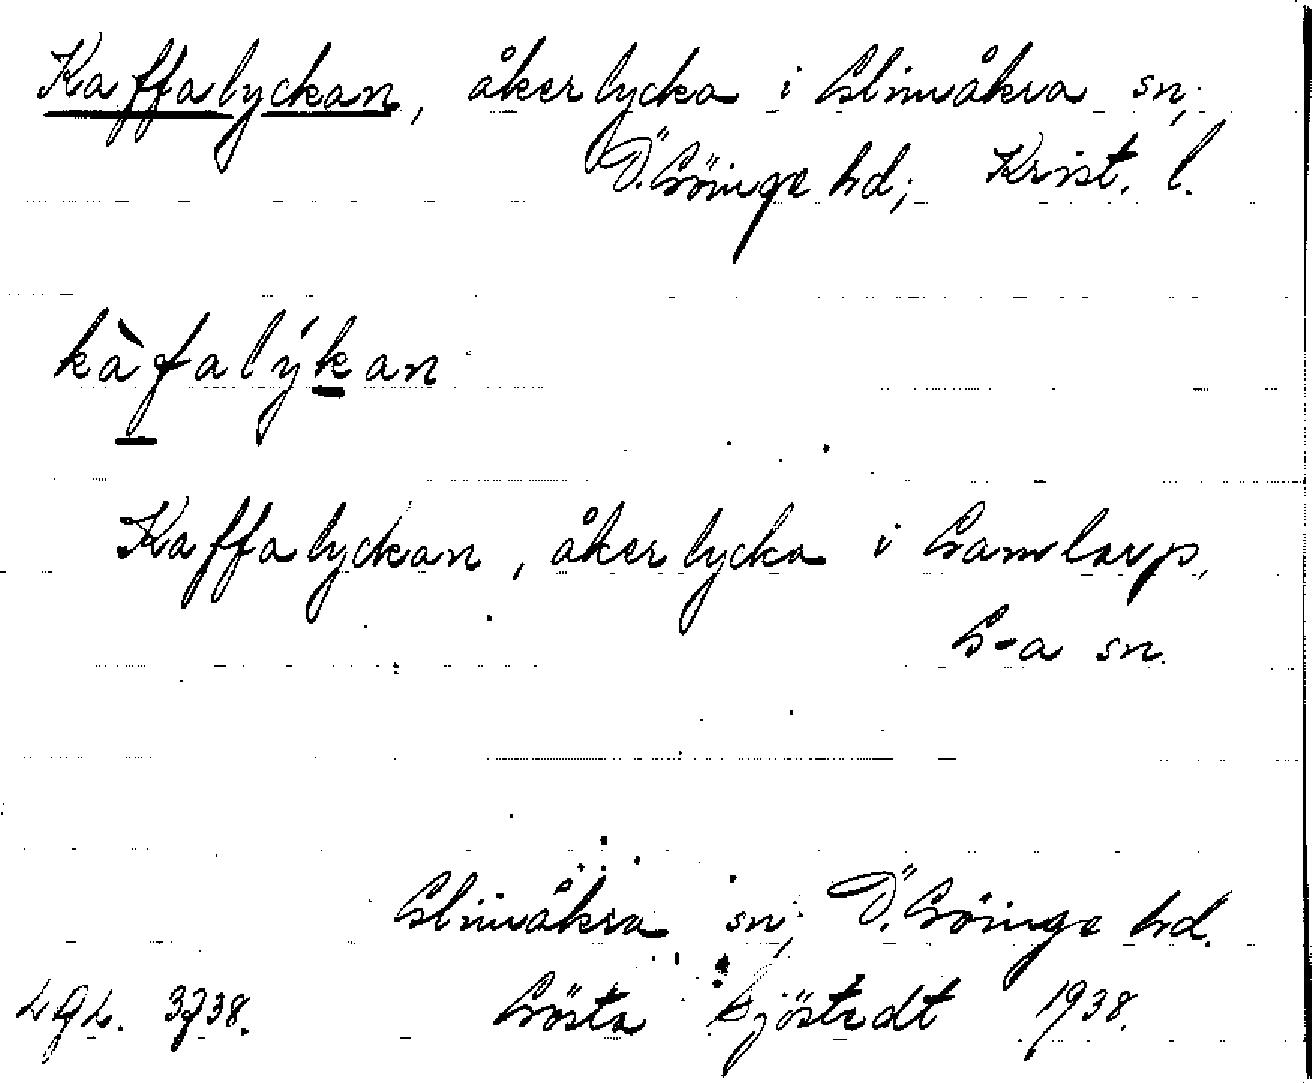 Kaffalyckan, åkerlycka i Glimåkra sn,
Ö. Göinge hd, Krist. l.
kàfalýkan
Kaffalyckan, åkerlycka i Gamlarp,
G-a sn.
Glimåkra sn, Ö. Göinge hd.
Gösta Sjöstedt 1938.